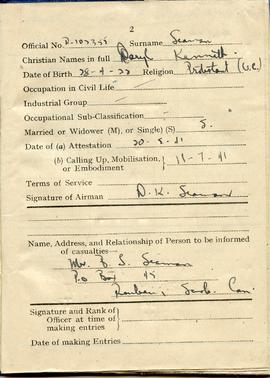 2
Official No. R-107355 Surname Seaman
Christian Names in full Daryl Kenneth
Date of Birth 28-4-22 Religion Protestant (U.C.)
Occupation in Civil Life
Industrial Group
Occupational Sub-Classification
Married or Widower (M), or Single) (S) S.
Date of (a) Attestation 20-5-41
(b) Calling Up, Mobilisation, or Embodiment 11-7-41
Terms of Service
Signature of Airman D.K. Seaman
Name, Address, and Relationship of Person to be informed
of casualties—
Mr. B. L. Seaman
P.O Box 45
Rouleau, Sask. Can.
Signature and Rank of
Officer at time of
making entries
Date of making Entries